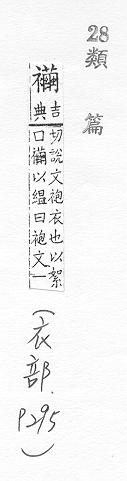 28類篇
襺吉典
切說文袍衣也以絮
口襺以緼曰袍文一
(衣部.P295)